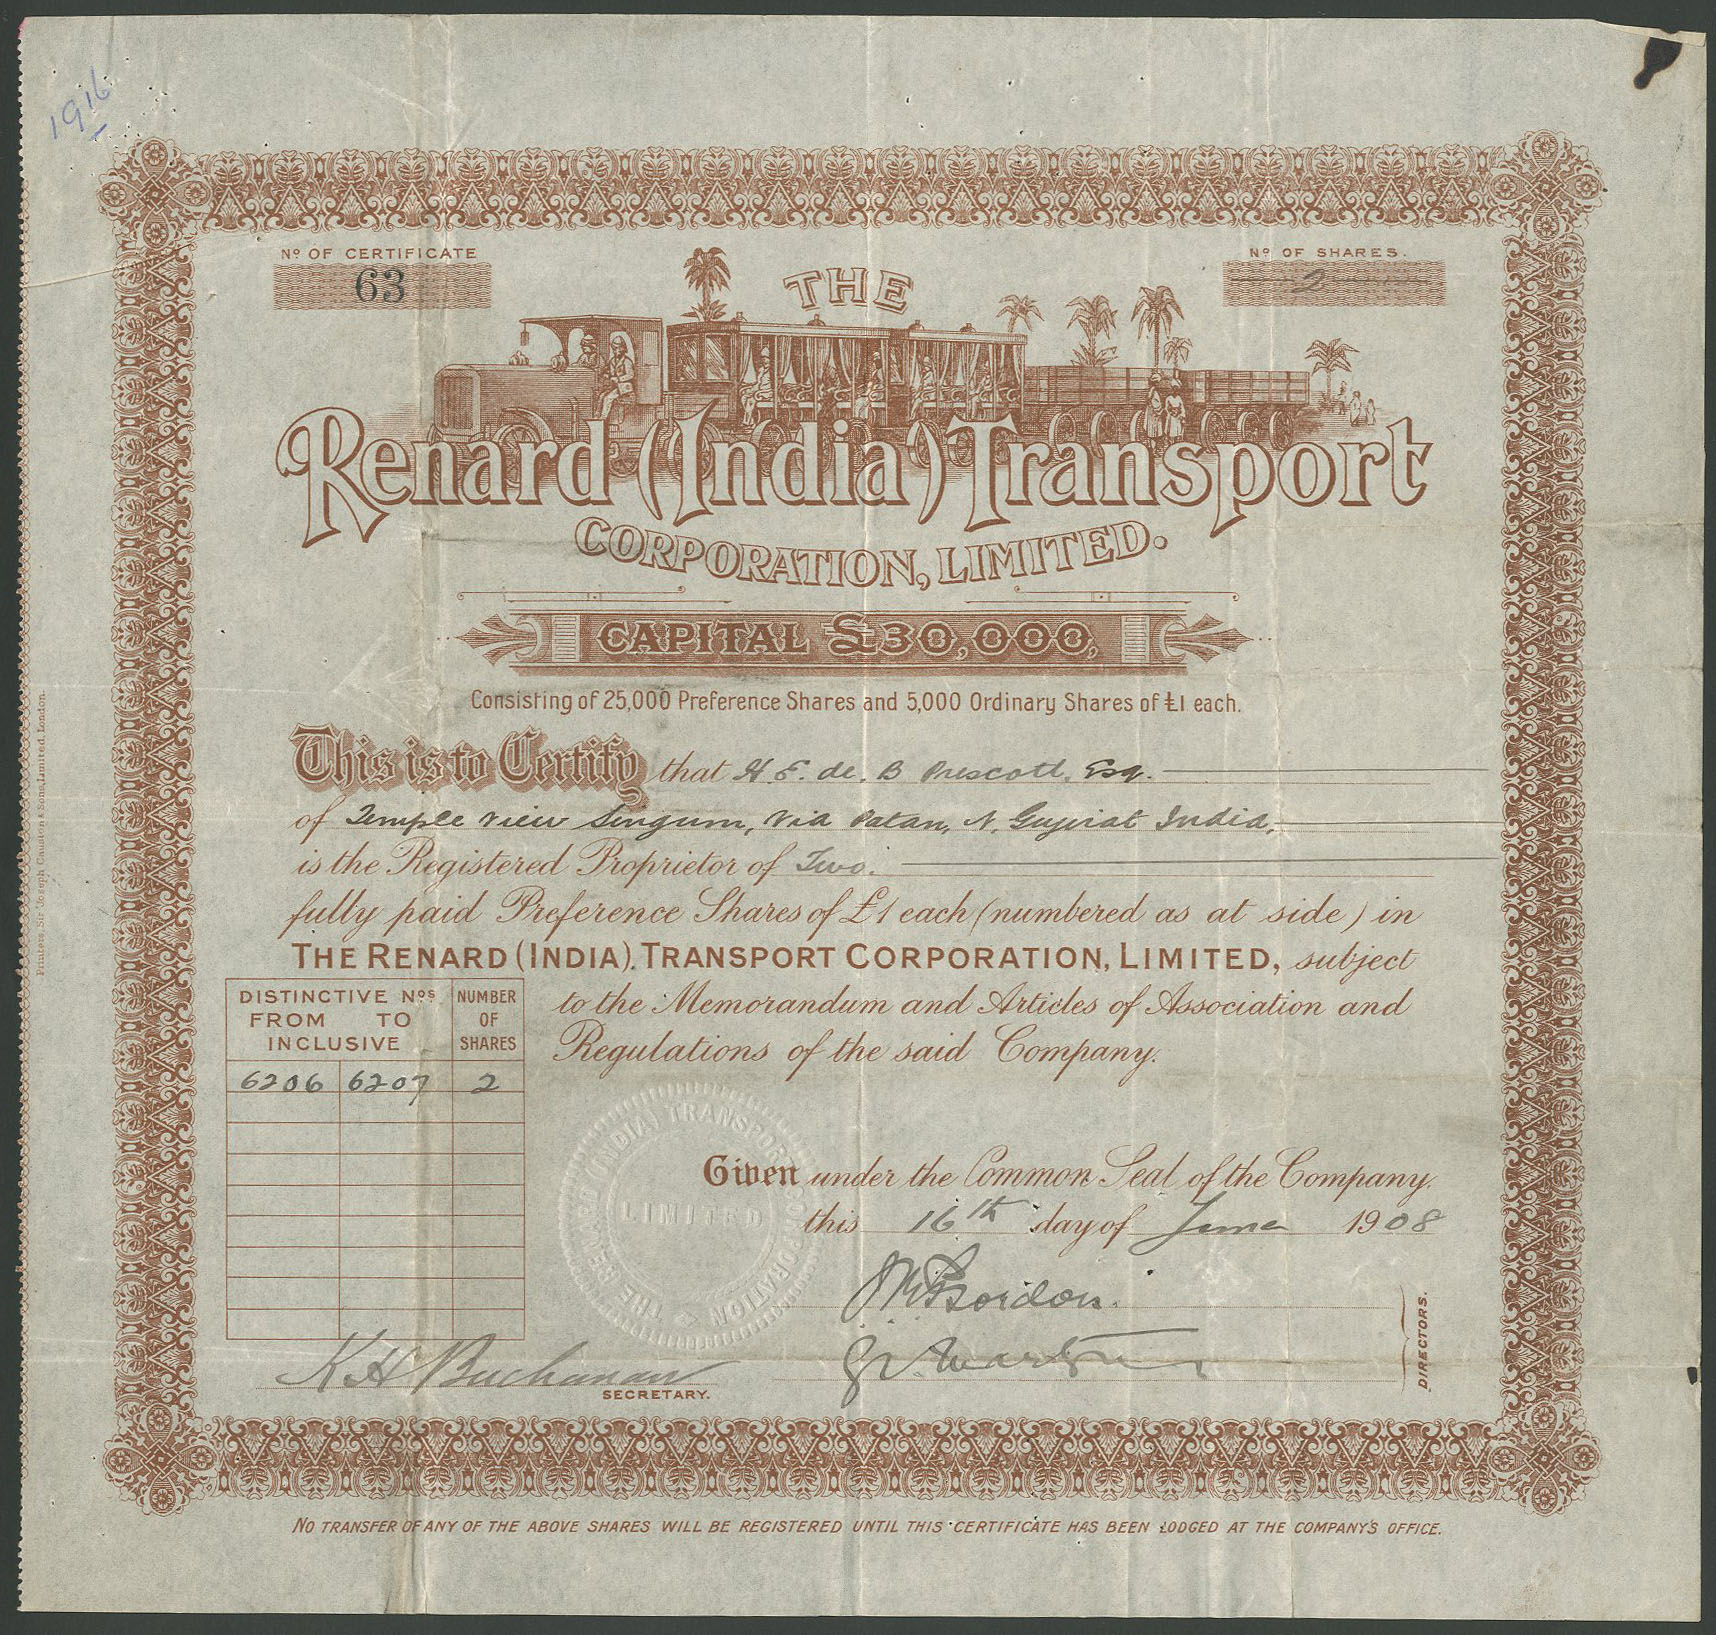 1916
Nº OF CERTIFICATE
63
Nº OF SHARES.
2
THE
Renard (India) Transport
CORPORATION, LIMITED.
CAPITAL £30,000,
Consisting of 25,000 Preference Shares and 5,000 Ordinary Shares of £1 each.
This is to Certify that H. E. de. B Prescott, Esq.
of Temple View Singum, Via Patan, N. Gujerat India,
is the Registered Proprietor of Two.
fully paid Preference Shares of £1 each (numbered as at side) in
THE RENARD (INDIA). TRANSPORT CORPORATION, LIMITED, subject
to the Memorandum and Articles of Association and
Regulations of the said Company.
DISTINCTIVE Nos
FROM TO
INCLUSIVE
NUMBER
OF
SHARES
6206 6207 2
THE RENARD (INDIA) TRANSPORT CORPORATION
LIMITED
Given under the Common Seal of the Company.
this 16th day of June 1908
Gordon.
DIRECTORS.
K H Buchanan
SECRETARY.
NO TRANSFER OF ANY OF THE ABOVE SHARES WILL BE REGISTERED UNTIL THIS CERTIFICATE HAS BEEN LODGED AT THE COMPANY'S OFFICE.
Printers, Sir Joseph Causton & Sons, Limited, London.